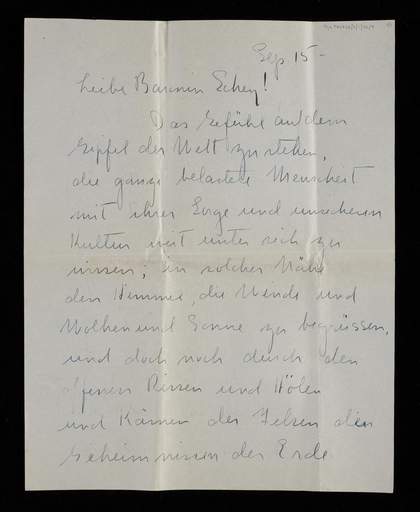 Sep 15-
Liebe Baronin Schey!
Das Gefühl auf dem
Gipfel der Welt zu stehen,
die ganze belastete Menscheit
mit ihrer Sorge und unsicheren
Kultur weit unter sich zu
wissen; in solcher Nähe
den Himmel, die Winde und
Wolken und Sonne zu begrüssen,
und doch noch durch den
offenen Rissen und Hölen
und der Felsen den
Geheimnissen der Erde